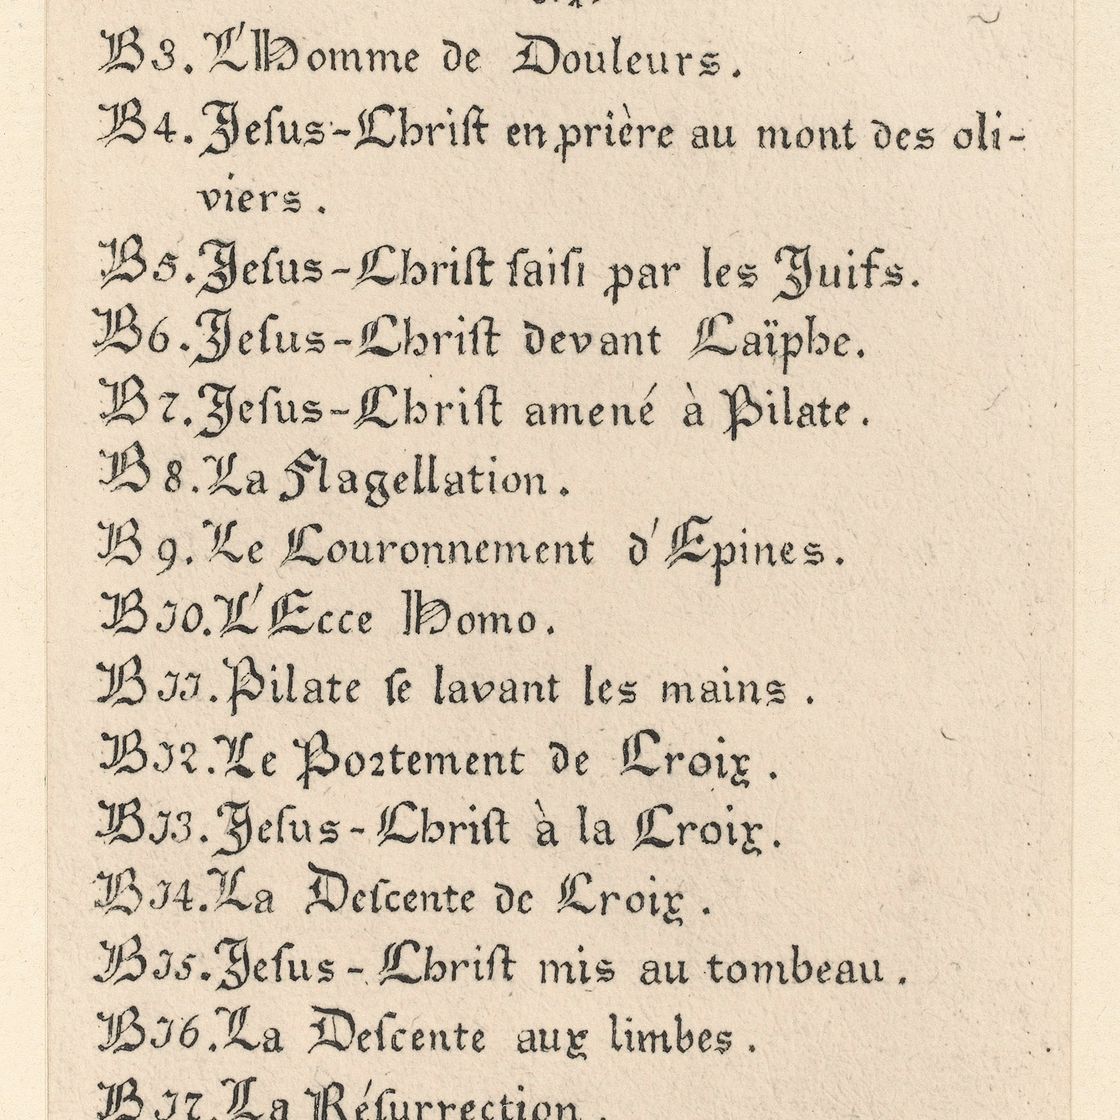 B3. L'Homme de Douleurs.
B4. Jeſus-Chriſt en prière au mont des oli-
viers.
B5. Jeſus-Chriſt ſaiſi par les Juifs.
B6. Jeſus-Chriſt devant Caïphe.
B7. Jeſus-Chriſt amené à Pilate.
B8. La Flagellation.
B9. Le Couronnement d'Epines.
B10. L'Ecce Homo.
B11. Pilate ſe lavant les mains.
B12. Le Portement de Croix.
B13. Jeſus-Chriſt à la Croix.
B14. La Deſcente de Croix.
B15. Jeſus-Chriſt mis au tombeau.
B16. La Deſcente aux limbes.
B17. La Réſurrection.